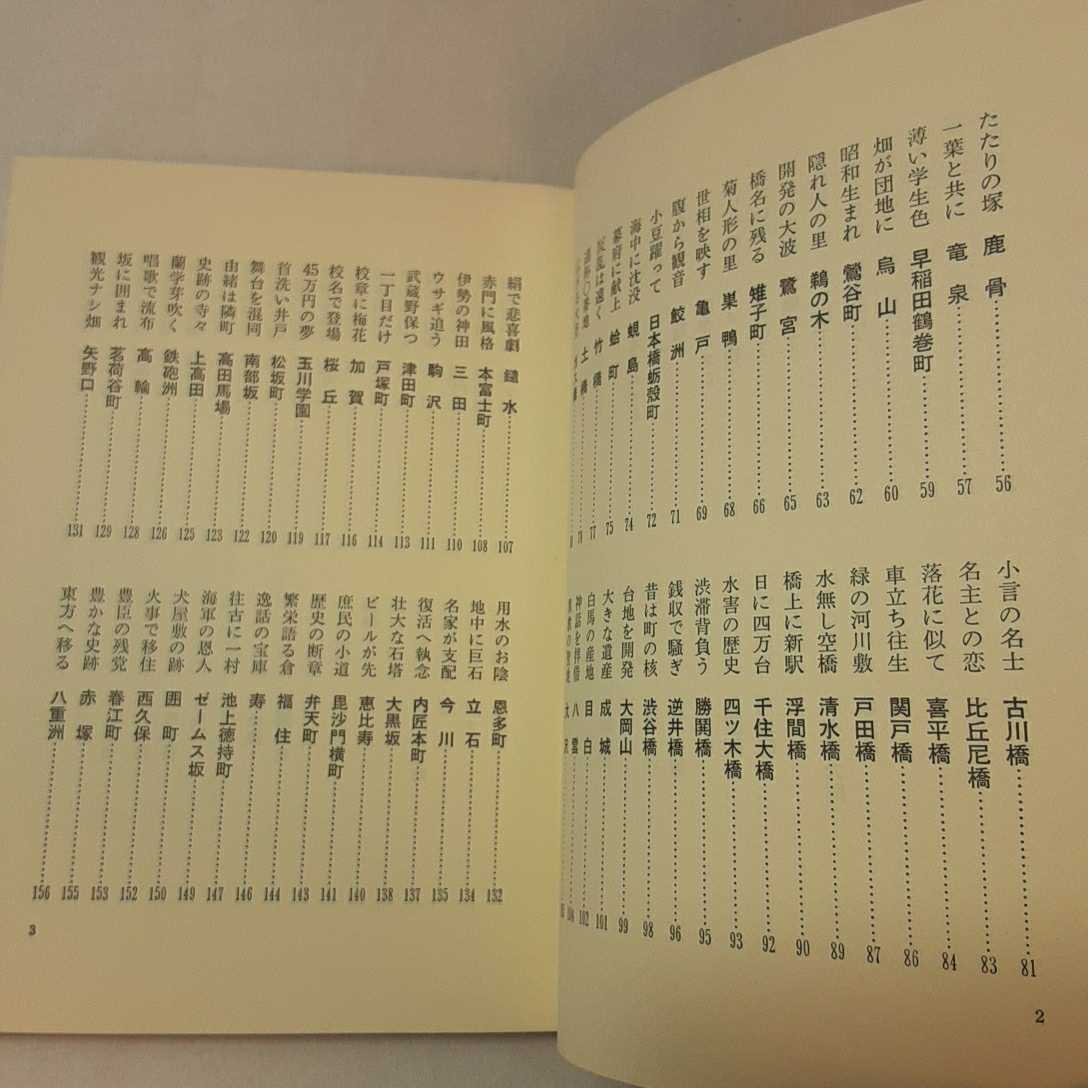 たたりの塚 鹿骨 56
一葉と共に 竜泉 57
薄い学生色 早稲田鶴巻町 59
畑が団地に 烏山 60
昭和生まれ 鶯谷町 62
隠れ人の里 鵜の木 63
開発の大波 鷺宮 65
橋名に残る 雉子町 66
菊人形の里 巣鴨 68
世相を映す 亀戸 69
腹から観音 鮫洲 71
小豆躍って 日本橋蛎殻町 72
海中に沈没 蜆島 74
幕府に献上 蛤町 75
は遠く 竹橋 77
土橋 78
小言の名士 古川橋 81
名主との恋 比丘尼橋 83
落花に似て 喜平橋 84
車立ち往生 関戸橋 86
緑の河川敷 戸田橋 87
水無し空橋 清水橋 89
橋上に新駅 浮間橋 90
日に四万台 千住大橋 92
水害の歴史 四ツ木橋 93
渋滞背負う 勝鬨橋 95
銭収で騒ぎ 逆井橋 96
昔は町の核 渋谷橋 98
台地を開発 大岡山 99
大きな遺産 成城 101
白馬の産地 目白 102
神話を拝借 八雲 104
2
絹で悲喜劇 鑓水 107
赤門に風格 本富士町 108
伊勢の神田 三田 110
ウサギ追う 駒沢 111
武蔵野保つ 津田町 113
一丁目だけ 戸塚町 114
校章に梅花 加賀 116
校名で登場 桜丘 117
45万円の夢 玉川学園 119
首洗い井戸 松坂町 120
舞台を混同 南部坂 122
由緒は隣町 高田馬場 123
史跡の寺々 上高田 125
蘭学芽吹く 鉄砲洲 126
唱歌で流布 高輪 128
坂に囲まれ 茗荷谷町 129
観光ナシ畑 矢野口 131
用水のお陰 恩多町 132
地中に巨石 立石 134
名家が支配 今川 135
復活へ執念 内匠本町 137
壮大な石塔 大黒坂 138
ビールが先 恵比寿 140
庶民の小道 毘沙門横町 141
歴史の断章 弁天町 143
繁栄語る倉 福住 144
逸話の宝庫 寿 146
往古に一村 池上徳持町 147
海軍の恩人 ゼームス坂 149
犬屋敷の跡 囲町 150
火事で移住 西久保 152
豊臣の残党 春江町 153
豊かな史跡 赤塚 155
東方へ移る 八重洲 156
3